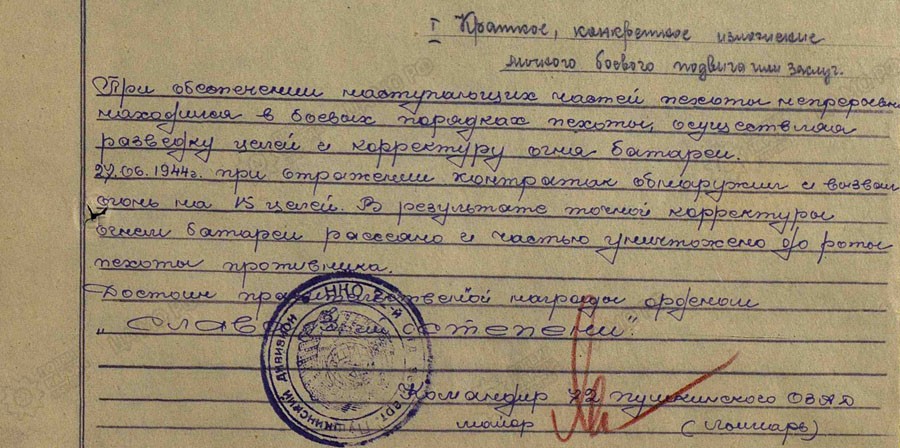 I Краткое, конкретное изложение
личного боевого подвига или заслуг.
При обеспечении наступающих частей пехоты непрерывно
находился в боевых порядках пехоты, осуществляя
разведку целей и корректуру огня батареи.
27.06.1944г. при отражении контратак обнаружил и вызвал
огонь на 15 целей. В результате точной корректуры
огнем батареи рассеяно и частью уничтожено до роты
пехоты противника.
Достоин правительственной награды орденом
"Слава степени".
НКО
Пушкинский дивизион
Командир 72 Пушкинского ОЗАД
майор